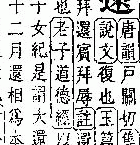 還
唐韻戶關切集
說文復也玉篇
拜還賓拜辱註
也老子道德經
十女紀是謂大還
十二月還相爲本